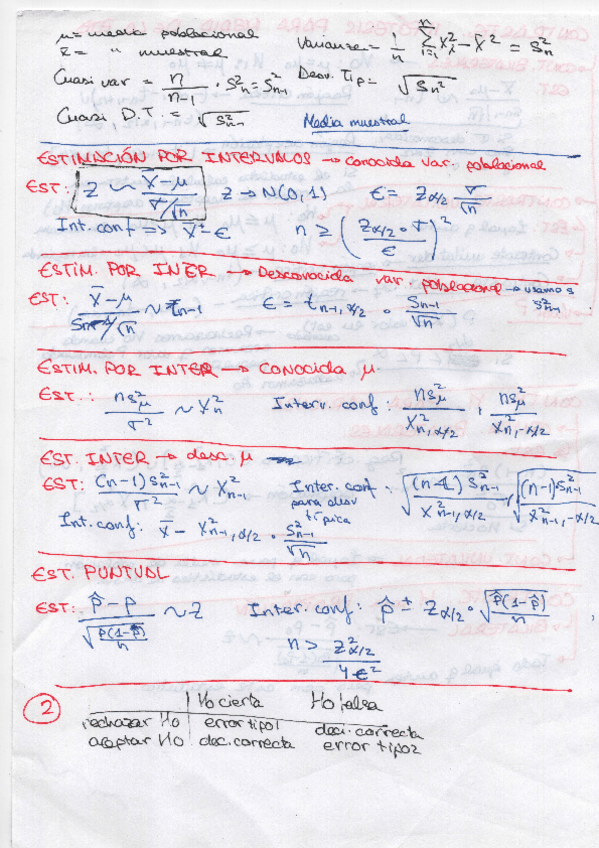 μ = media poblacional
x̄ = " muestral
Varianza = 1/n Σ(i=1, n) Xi² - X̄² = Sn²
Cuasi var = n/(n-1) · Sn² = S²n-1
Desv. Tip = √Sn²
Cuasi. D.T. = √S²n-1
Media muestral
ESTIMACIÓN POR INTERVALOS → conocida var. poblacional
EST: Z ∼ (X̄-μ)/(σ/√n)   Z → N(0,1)   ε = Zα/2 σ/√n
Int. conf => X̄ ± ε   n ≥ (Zα/2 · σ / ε)²
ESTIM. POR INTER → Desconocida var. poblacional → usamos S²n-1
EST: (X̄-μ)/(Sn-1/√n) ∼ tn-1   ε = tn-1, α/2 · Sn-1/√n
ESTIM. POR INTER → CONOCIDA μ
EST.: nS²μ/σ² ∼ X²n   Interv. conf: nS²μ/X²n, α/2 , nS²μ/X²n, 1-α/2
EST. INTER → desc μ
EST: (n-1)S²n-1/σ² ∼ X²n-1   Inter. conf para desv típica: √((n-1)S²n-1/X²n-1, α/2) , √((n-1)S²n-1/X²n-1, 1-α/2)
Int. conf: x̄ - X²n-1, α/2 · S²n-1/√n
EST. PUNTUAL
EST: (p̂ - p)/√(p(1-p)/n) ∼ Z   Inter. conf: p̂ ± Zα/2 · √(p̂(1-p̂)/n)
n > Z²α/2 / 4ε²
2
Ho cierta   Ho falsa
rechazar Ho   error tipo1   deci. correcta
aceptar Ho   dec. correcta   error tipo2